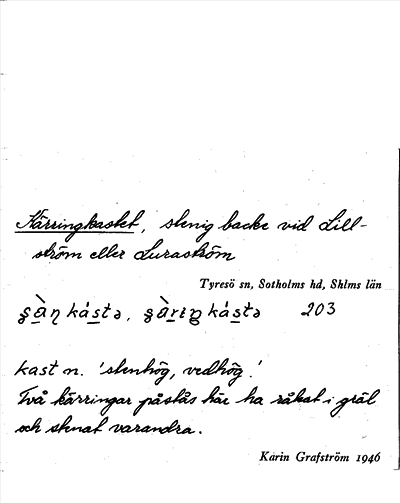 Kärringkastet, stenig backe vid Lill-
ström eller Luraström
Tyresö sn, Sotholms hd, Sthlms län
203
kast n. 'stenhög, vedhög.'
Två kärringar påstås här ha råkat i gräl
och stenat varandra.
Karin Grafström 1946